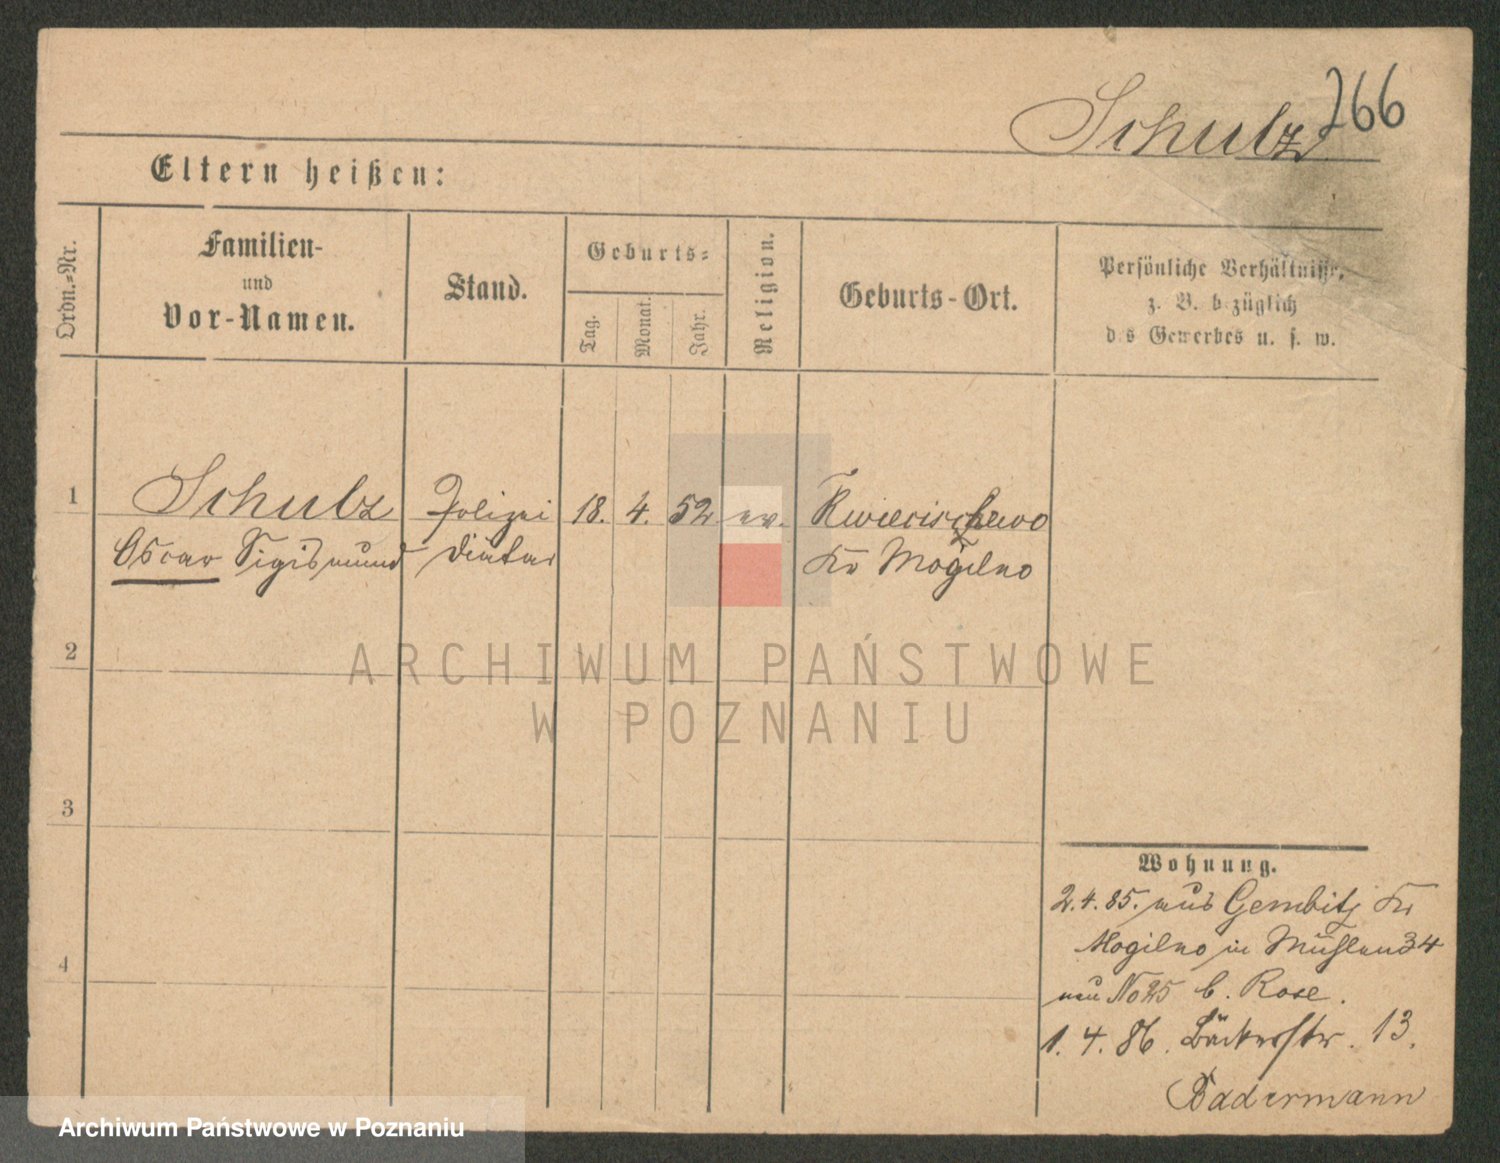 Schulz 766
Eltern heißen:
Ordn.-Nr.
Familien-
und
Vor-Namen.
Stand.
Geburts-
Tag.
Monat.
Jahr.
Religion.
Geburts-Ort.
Persönliche Verhältnisse,
z. B. bezüglich
des Gewerbes u. s. w.
1 Schulz Polizei 18. 4. 52 ev. Kwiecischewo
Oscar Sigismund Diätar Kr Mogilno
2
3
4
Wohnung.
2.4.85. aus Gembitz Kr
Mogilno in Mühlen 34
neu No 25 b. Rose.
1. 4. 86. Bäckerstr. 13.
Badermann
ARCHIWUM PAŃSTWOWE
W POZNANIU
Archiwum Państwowe w Poznaniu